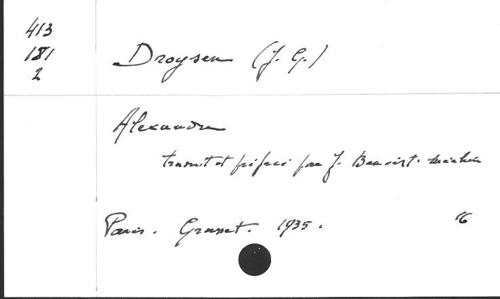 413
181
2
Droysen (J. G.)
Alexandre
traduit et préfacé par J. Benoist-Méchin
Paris. Grasset. 1935.
16